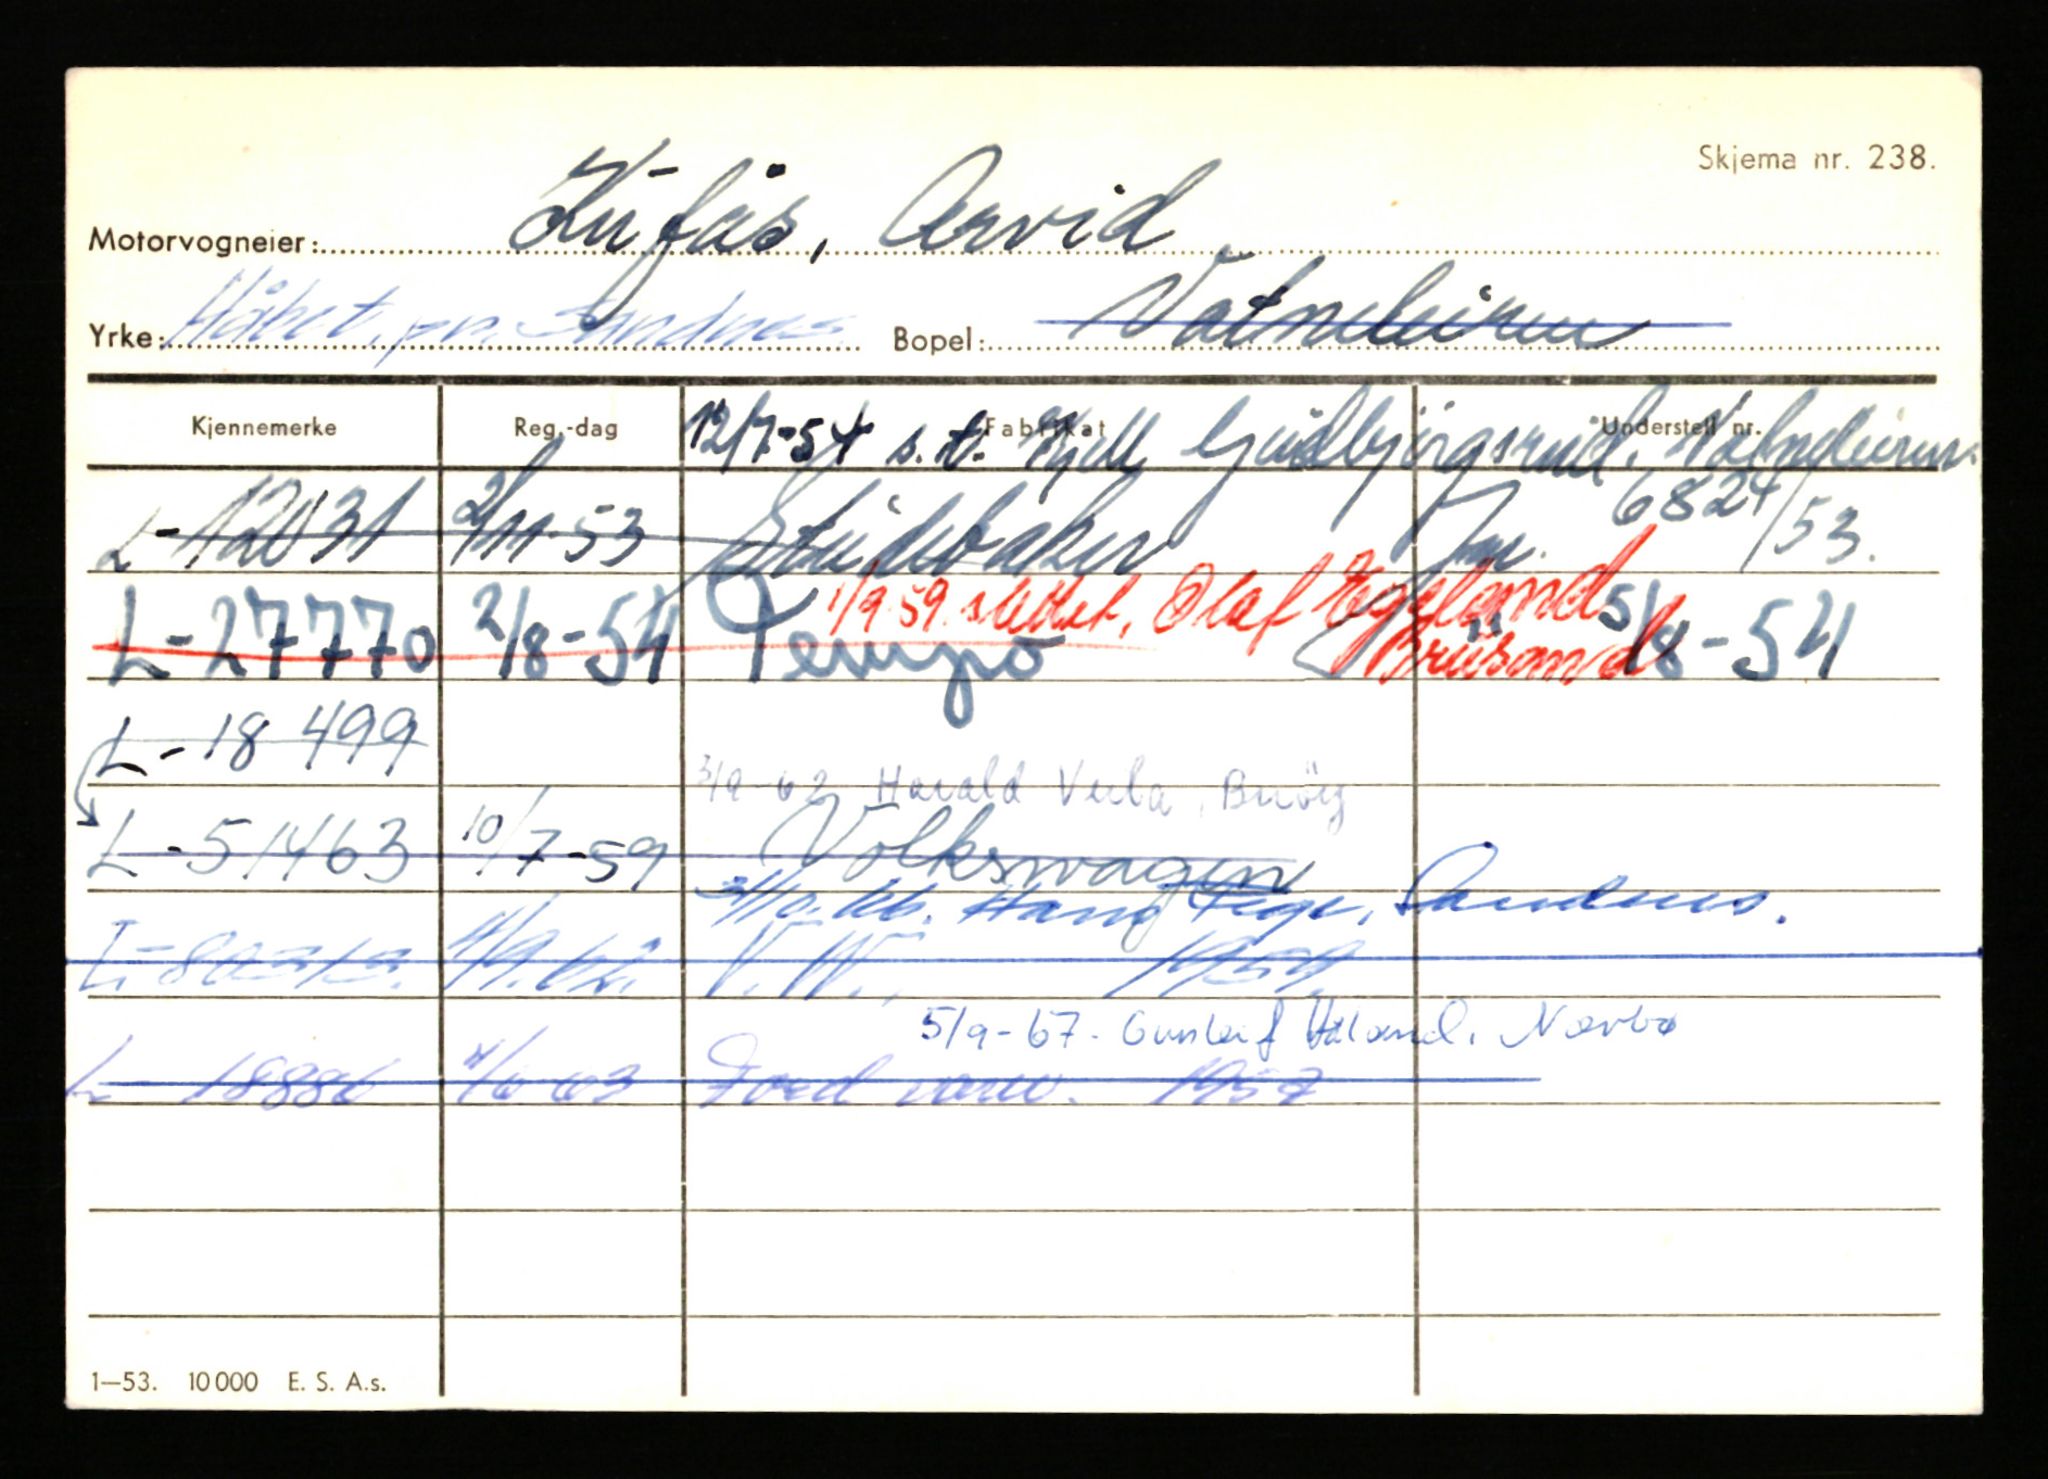 Skjema nr. 238.
Motorvogneier: Arvid
Yrke: pr. Sandnes Bopel: Vatneleiren
Kjennemerke Reg.-dag Fabrikat Understell nr.
12/7-54 s.t. Kjell Gudbjørgsrud, Vatneleiren.
L-12031 2/11-53 Studebaker Jnr. 6824/53.
1/9 59. slettet, Olaf Eggeland
Brusand
L-27770 2/8-54 Tempo 5/8-54
L-18 499
3/9-62 Harald
L-51463 10/7-59 Volkswagen
Hans Sandnes.
L- 4/9.62. V.W. 1959.
5/9-67. Gunleif Håland, Nærbø
L- 18886 Ford varev. 1957
1—53. 10000 E. S. A.s.